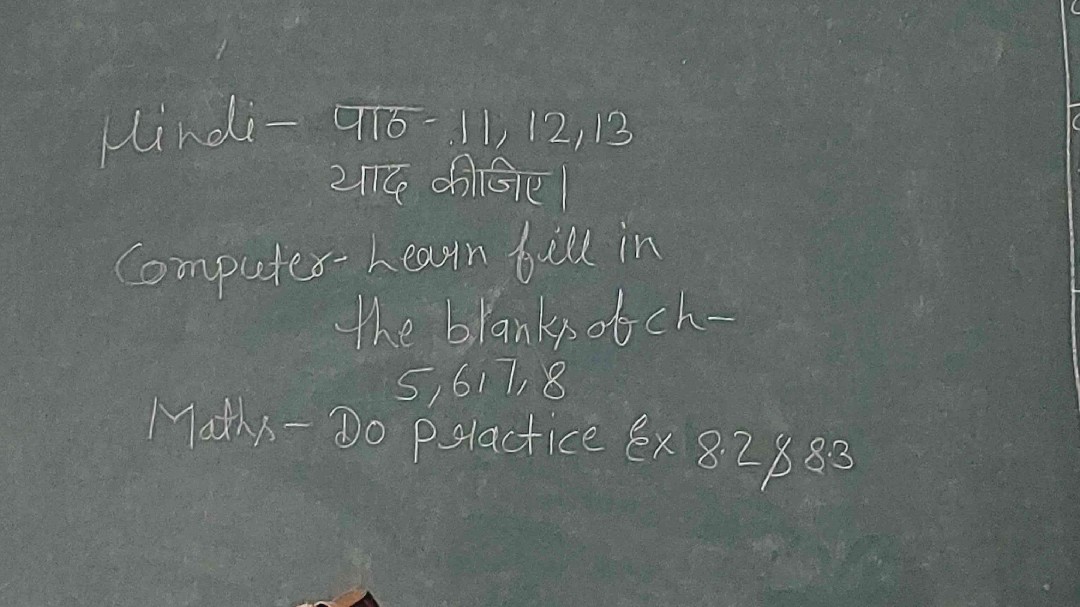 Hindi - पाठ - 11, 12, 13
याद कीजिए।
Computer - Learn fill in
the blanks of ch -
5, 6, 7, 8
Maths - Do practice Ex 8.2 & 8.3